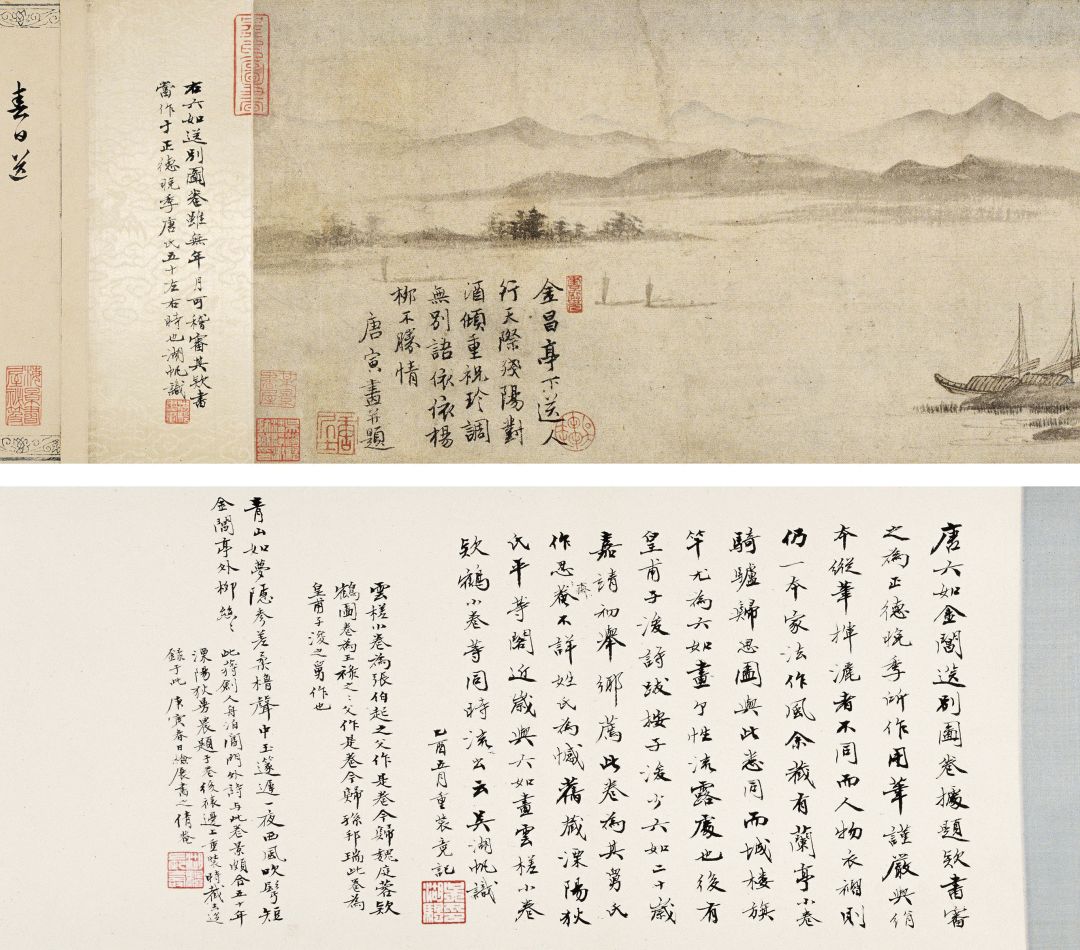 金昌亭下送人
行天際殘陽對
酒傾重祝玲調
無別語依依楊
柳不勝情
唐寅畫并題
右六如送別圖卷雖無年月可稽審其款書
當作于正德晚季唐氏五十左右時也湖帆識
春日送
唐六如金閶送別圖卷據題款書審
之為正德晚季所作用筆謹嚴與俏
本縱筆揮灑者不同而人物衣褶則
仍一本家法作風余藏有蘭亭小卷
騎驢歸思圖與此悉同而城楼旗
竿尤為六如畫個性流露處也後有
皇甫子浚詩跋按子浚少六如二十歲
嘉靖初舉鄉薦此卷為其舅氏
作思菴不詳姓氏為憾舊藏溧陽狄
氏平等閣近歲與六如畫雲槎小卷
款鶴小卷等同時流出云吳湖帆識
乙酉五月重装竟記
雲槎小卷為張伯起之父作是卷今歸魏庭蓉款
鶴圖卷為王祿之父作是卷今歸孫邦瑞此卷為
皇甫子浚之舅作也
青山如夢隱參差柔櫓聲中玉篴遲一夜西風吹鬢短
金閶亭外柳絲絲
此蒋劍人舟泊閶門外詩与此卷景頗合五十年
溧陽狄

録于此庚寅春日